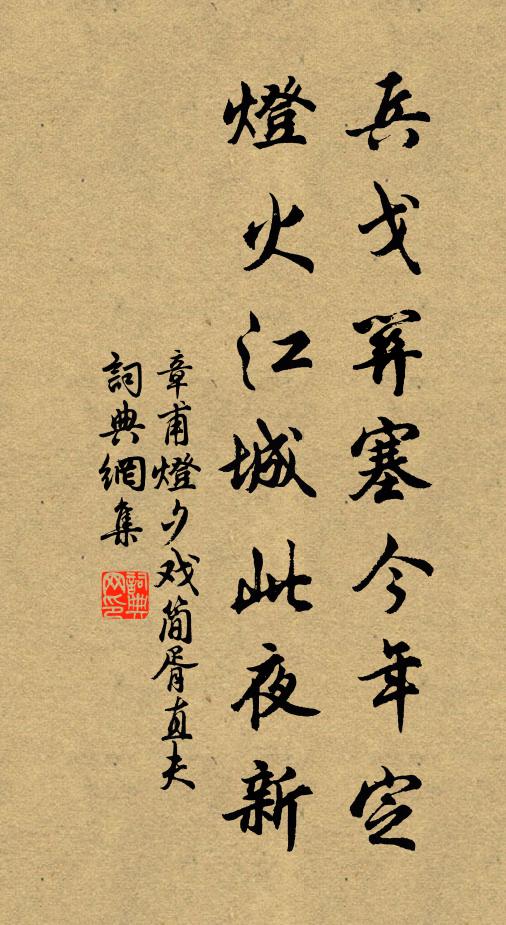 兵戈關塞今年定
燈火江城此夜新
章甫燈夕戏简胥直夫
詞典網集
詞典网印